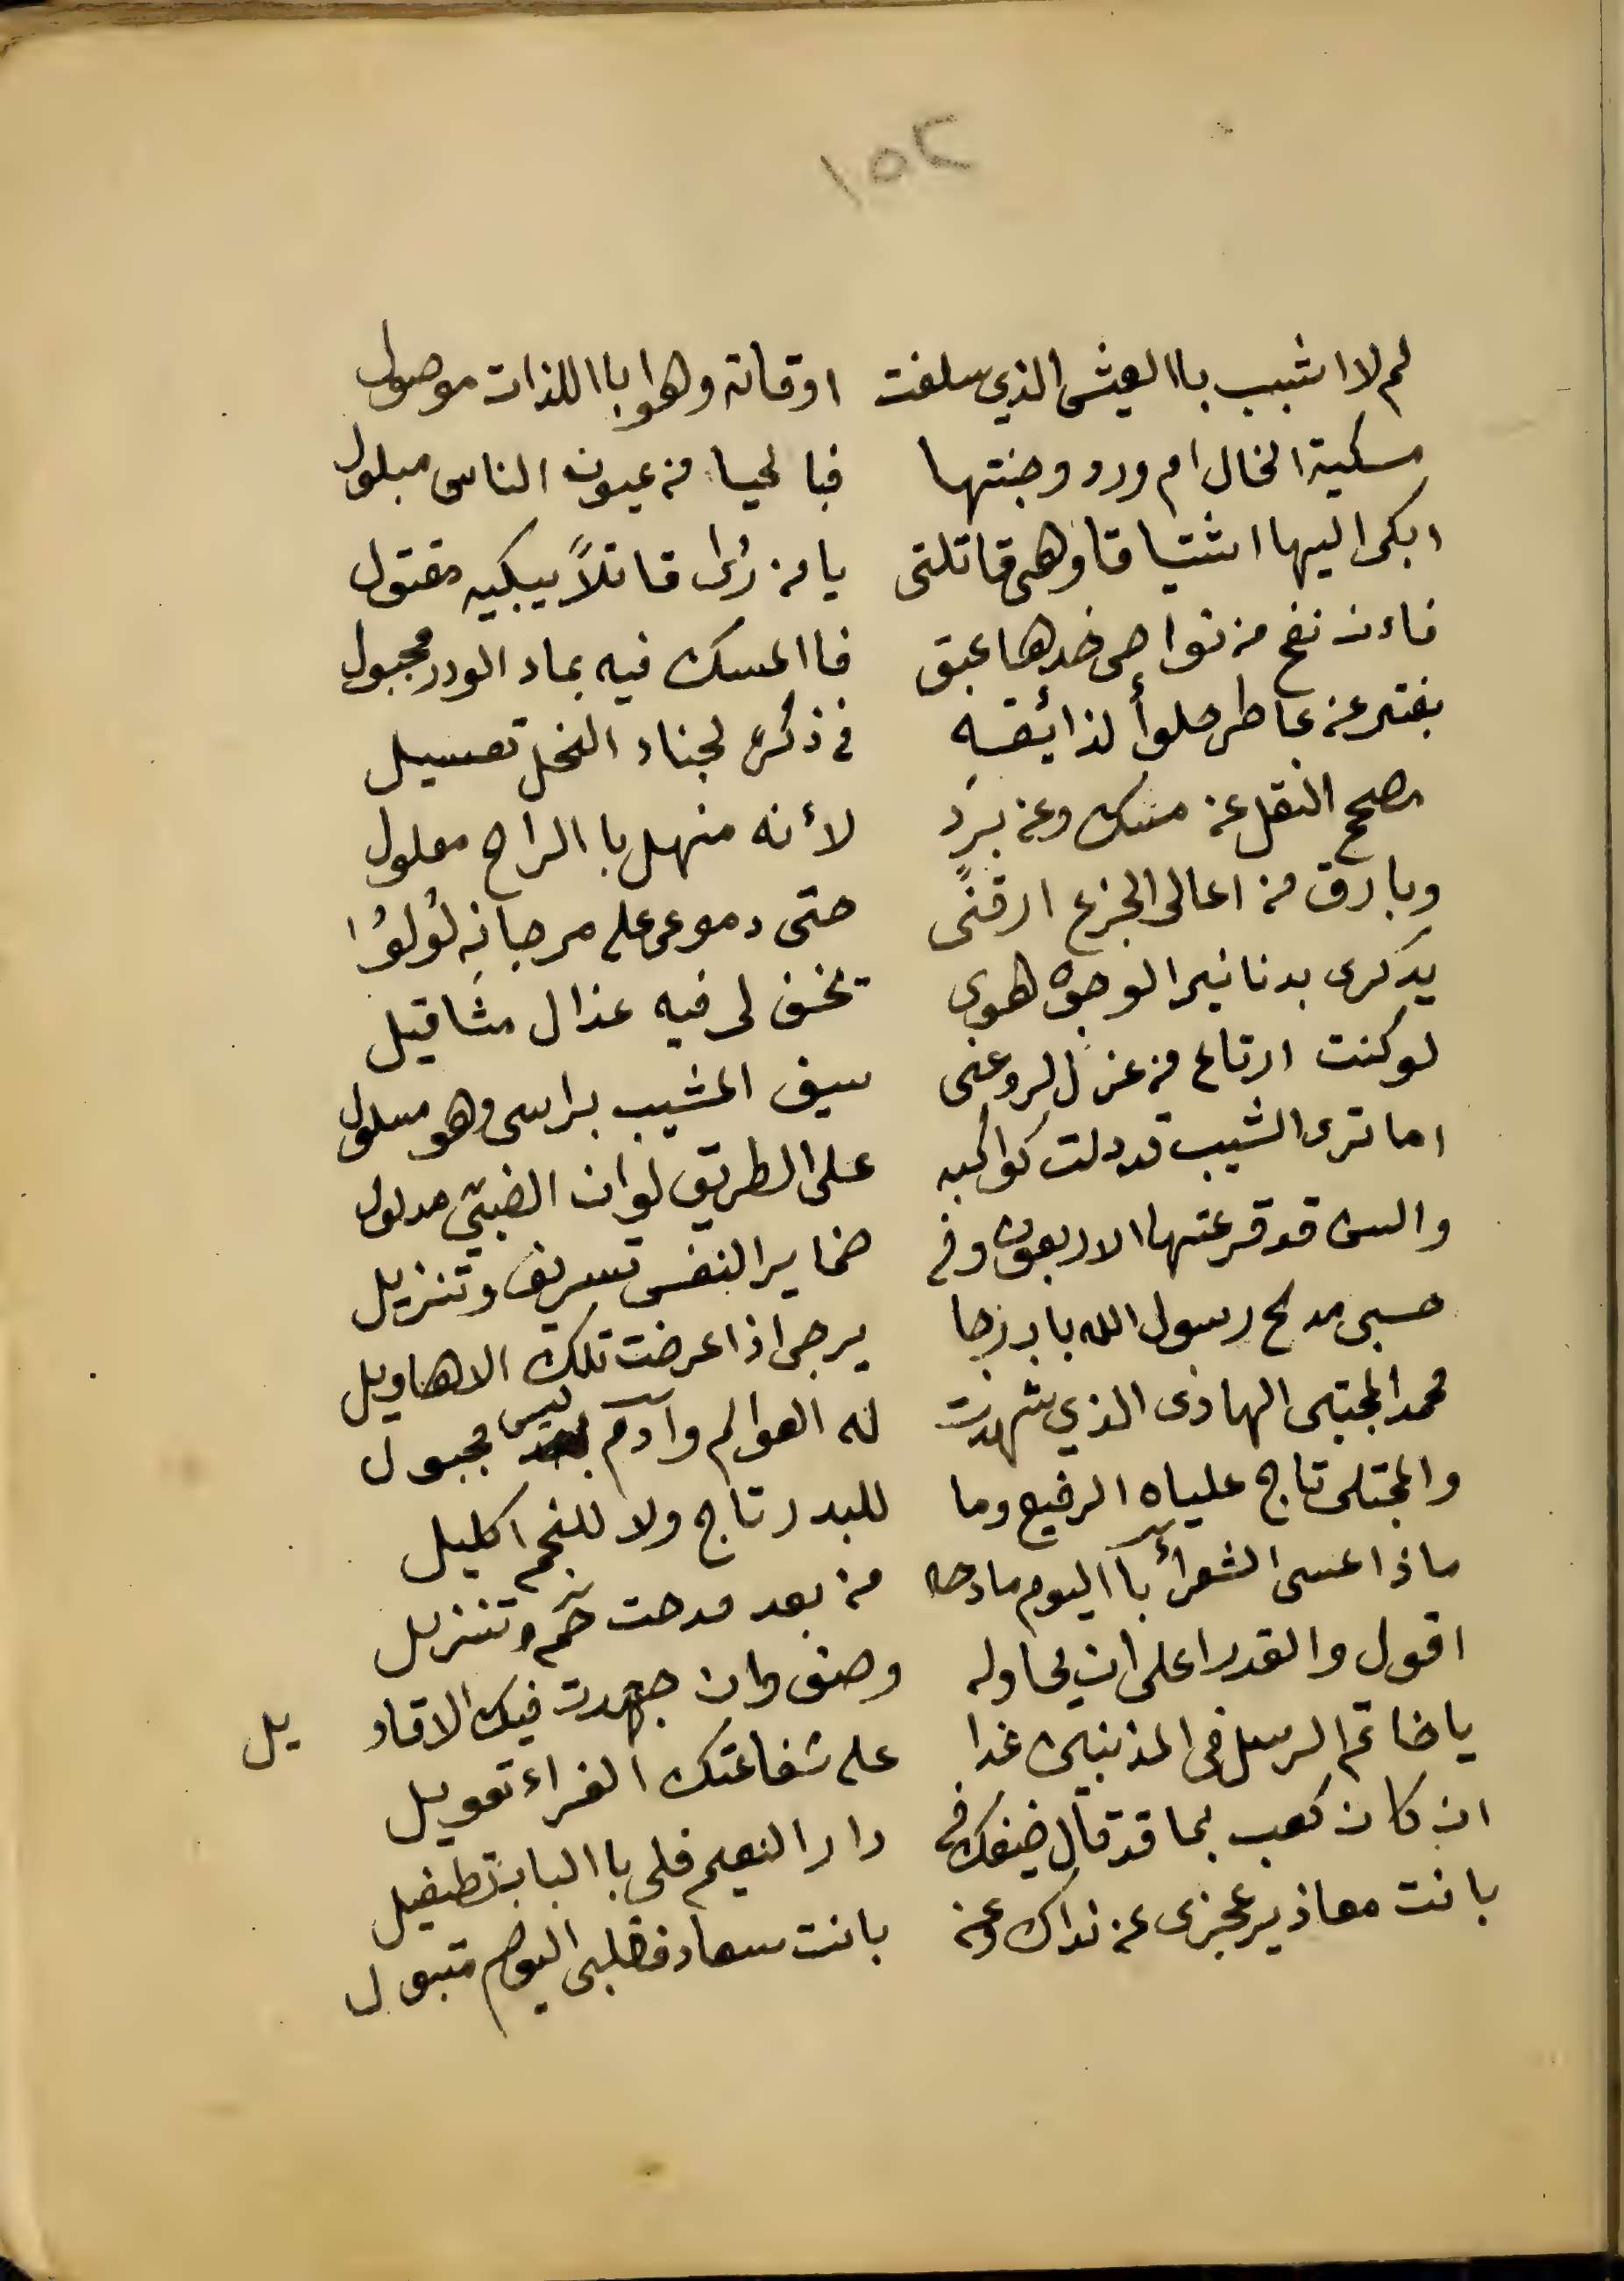 ١٥٢
لم لا اشبب باالعيش الذي سلفت اوقاته وهوا بااللذات موصول
مسكية الخال ام ورد وجنتها فبالحيا من عيون الناس مبلول
ابكى اليها اشتياقا وهى قاتلتى يا من رئى قاتلاً يبكيه مقتول
نفح من نواحى خدها عبق فاالمسك فيه بماد الورد مجبول
يفتر عن عاطر حلوأ لذائقه فى ذكره لجناء النحل تعسيل
مصحح النقل عن مسك وعن برد لأنه منهل باالراح معلول
وبارق من اعالى الجزع ارقنى حتى دموعى على مرجانه لؤلؤا
يدكرى بدنانير الوجوه لهوى تخف لى فيه عذال مثاقيل
لو كنت ارتاع من عزل لروعنى سيف المشيب براسى وهو مسلول
اما ترى الشيب قد دلت كواكبه على الطريق لوان الضبىّ مدلول
والسن قد قرعتها الاربعون وفى ضماير النفس تسريف وتنزيل
حسبى مدح رسول الله باب رجا يرجى اذا عرضت تلك الاهاويل
محمد المجتبى الهادى الذي شهدت له العوالم وآدم ليس مجبول
والمجتلى تاج علياه الرفيع وما للبدر تاج ولا للنجم اكليل
ماذا عسى الشعرأ بآاليوم مادحه من بعد مدحت حم وتنزيل
اقول والقدر اعلى ان يحاوله وصف وان جهدت فيك الاقاو يل
يا خاتم الرسل فى المذنبين غدا على شفاعتك الغراء تعويل
ان كان كعب بما قد قال ضيفك فى دار النعيم فلى باالباب تطفيل
بانت معاذير عجزى عن نداك وعن بانت سعاد فقلبى اليوم متبول